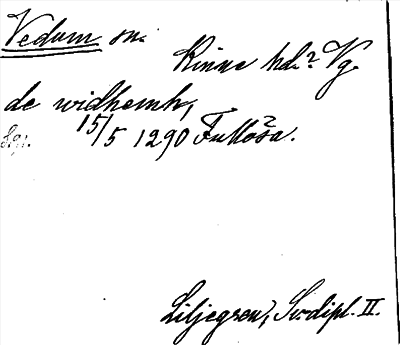 Vedum sn.
Kinne hd. Vg.
de widhemh,
15/5 1290 Fullösa.
Liljegren, Sv.dipl. II.